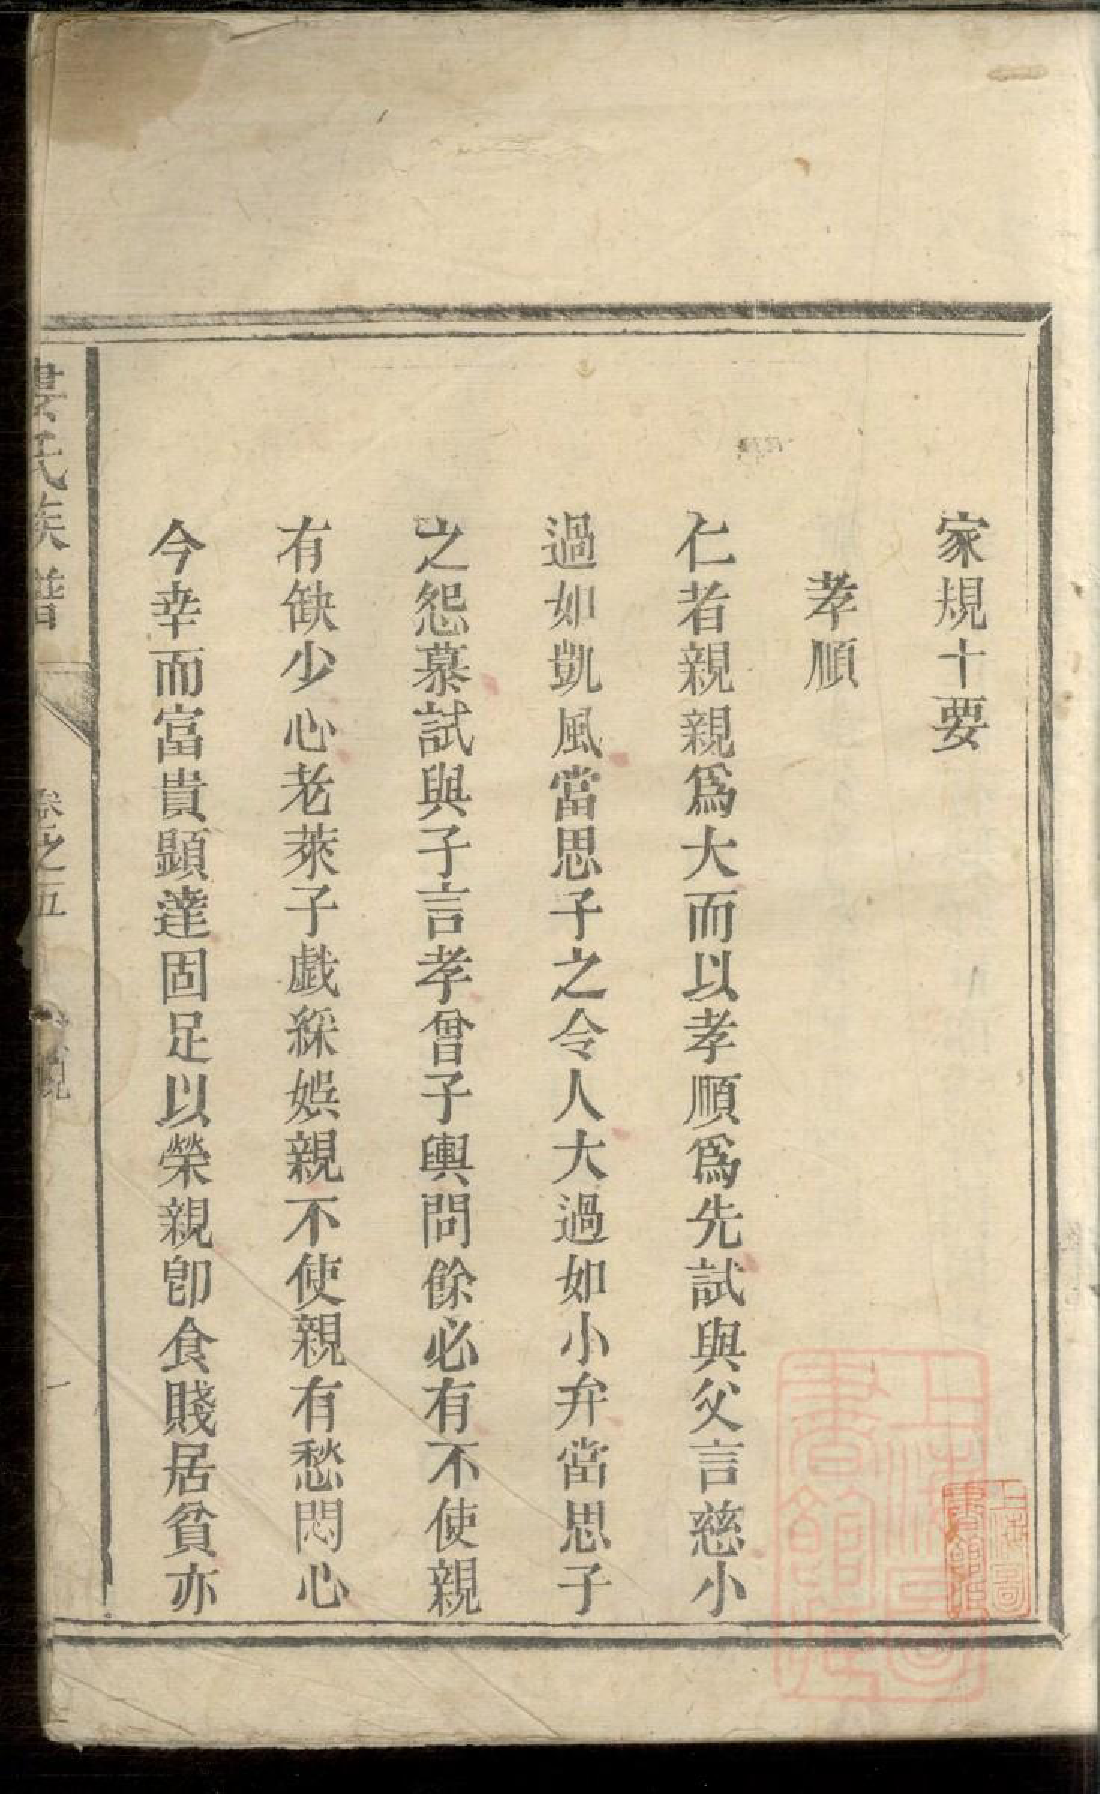 家規十要
孝順
仁者親親爲大而以孝順爲先試與父言慈小
過如凱風當思子之令人大過如小弁當思子
之怨慕試與子言孝曾子輿問餘必有不使親
有缺少心老萊子戱綵娛親不使親有愁悶心
今幸而富貴顯達固足以榮親卽食賤居貧亦
氏族譜
卷之五
一
上海圖書館藏
上海圖書館藏